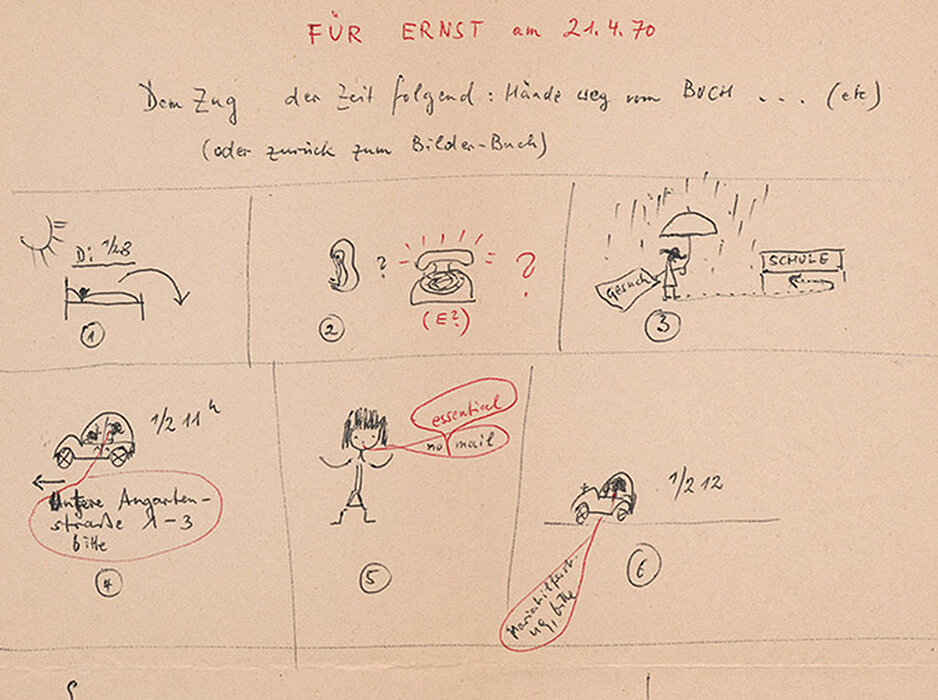 FÜR ERNST am 21.4.70
Dem Zug der Zeit folgend: Hände weg vom BUCH ... (etc)
(oder zurück zum Bilder-Buch)
Di 1/2 8
1
? ?
(E?)
2
SCHULE
Gesuch
3
1/2 11 h
Untere Augarten-
straße 1-3
bitte
4
essential
no mail
5
1/2 12
bitte
6